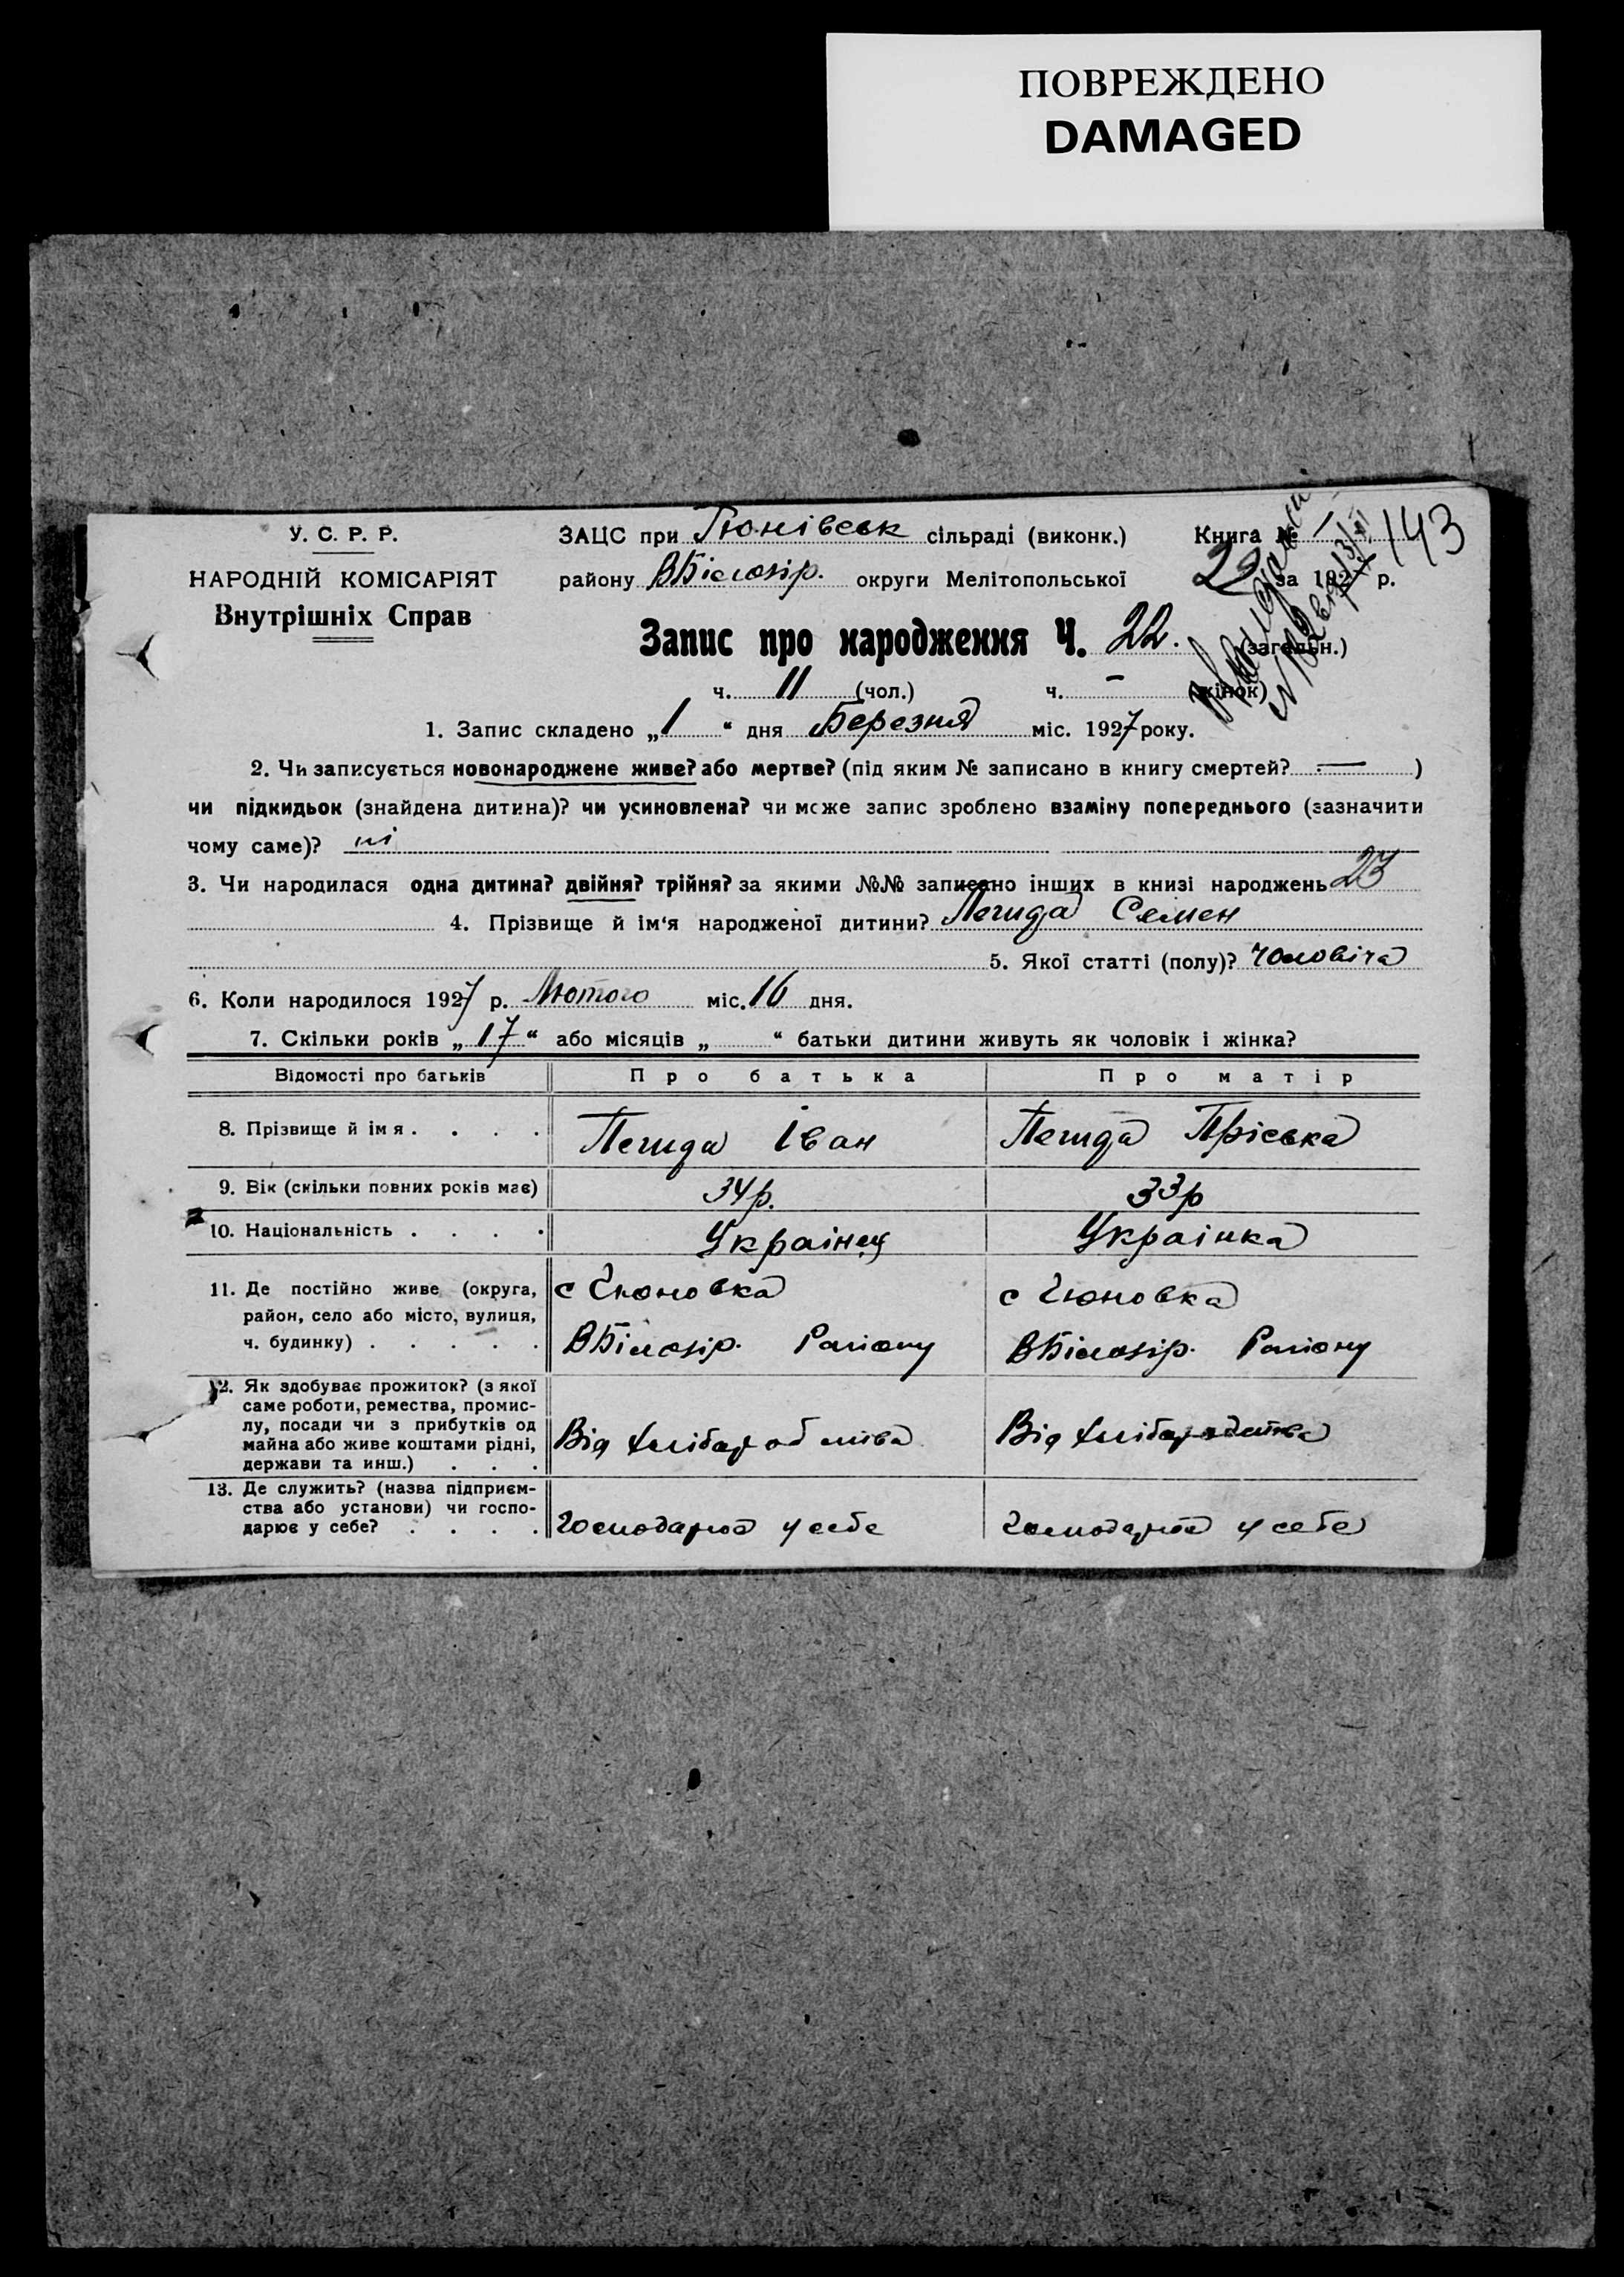 ПОВРЕЖДЕНО
DAMAGED
У. С. Р. Р.
НАРОДНІЙ КОМІСАРІЯТ
Внутрішніх Справ
ЗАЦС при Гюнівськ сільраді (виконк.)
району ВБілозір. округи Мелітопольської
Книга № 1 143
22 за 1927 р.
Запис про народження Ч. 22. (загальн.)
ч. 11 (чол.) ч. - (жінок)
1. Запис складено „1“ дня Березня міс. 1927 року.
2. Чи записується новонароджене живе? або мертве? (під яким № записано в книгу смертей? — )
чи підкидьок (знайдена дитина)? чи усиновлена? чи може запис зроблено взаміну попереднього (зазначити
чому саме)? ні
3. Чи народилася одна дитина? двійня? трійня? за якими №№ записано інших в книзі народжень 23
4. Прізвище й ім‘я народженої дитини? Легида Семен
5. Якої статті (полу)? Чоловіча
6. Коли народилося 1927 р. Лютого міс. 16 дня.
7. Скільки років „17“ або місяців „ “ батьки дитини живуть як чоловік і жінка?
Відомості про батьків Про батька Про матір
8. Прізвище й імя . . . . Легида Іван Легида Пріська
9. Вік (скільки повних років має) 34р. 33р
10. Національність . . . . Украінец Украінка
11. Де постійно живе (округа,
район, село або місто, вулиця,
ч. будинку) . . . . .
с Гюновка
ВБілозір. Району
с Гюновка
ВБілозір. Району
12. Як здобуває прожиток? (з якої
саме роботи, ремества, промис-
лу, посади чи з прибутків од
майна або живе коштами рідні,
держави та инш.) . . .
Від хліборобства
Від хліборобства
13. Де служить? (назва підприєм-
ства або установи) чи госпо-
дарює у себе? . . . .
Господарює у себе
Господарює у себе